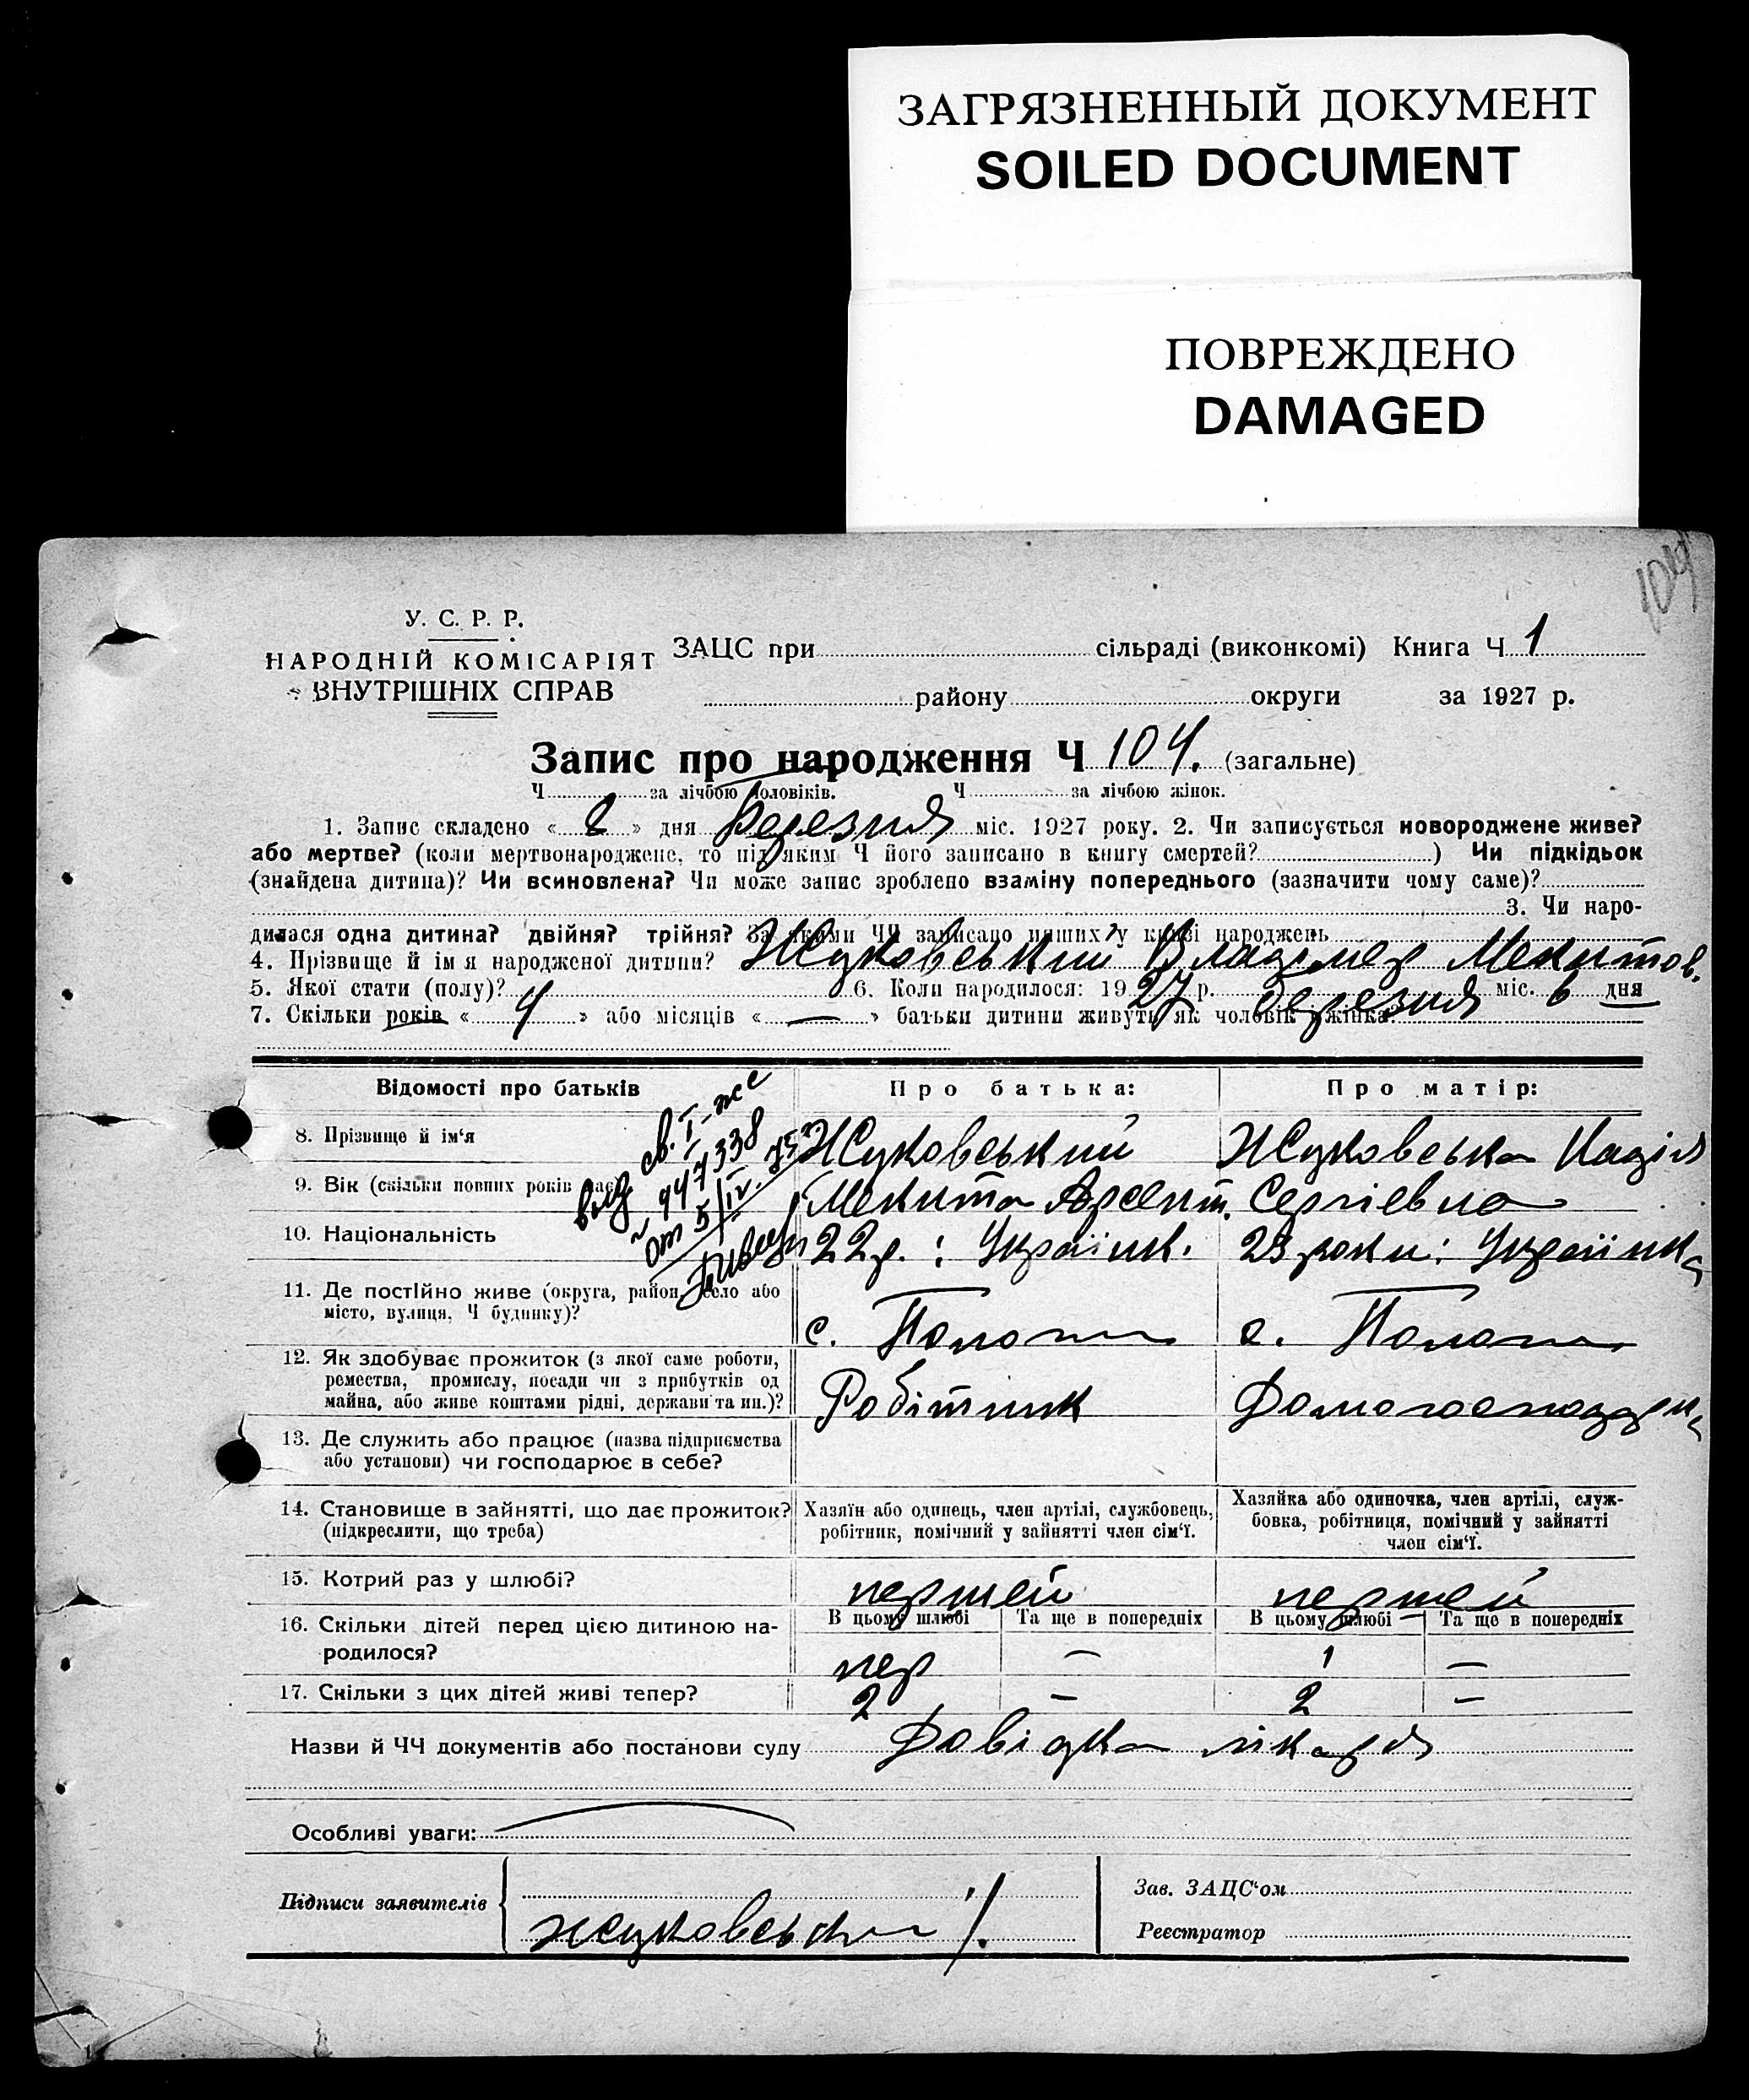 ЗАГРЯЗНЕННЫЙ ДОКУМЕНТ
SOILED DOCUMENT
ПОВРЕЖДЕНО
DAMAGED
104
У. С. Р. Р.
НАРОДНІЙ КОМІСАРІЯТ
ВНУТРІШНІХ СПРАВ
ЗАЦС при сільраді (виконкомі) Книга Ч 1
району округи за 1927 р.
Запис про народження Ч 104. (загальне)
Ч за лічбою чоловіків. Ч за лічбою жінок.
1. Запис складено « 8 » дня березня міс. 1927 року. 2. Чи записується новороджене живе?
або мертве? (коли мертвонароджене, то під яким Ч його записано в книгу смертей? ) Чи підкідьок
(знайдена дитина)? Чи всиновлена? Чи може запис зроблено взаміну попереднього (зазначити чому саме)?
3. Чи наро-
дилася одна дитина? двійня? трійня? За якими ЧЧ записано инших у книзі народжень
4. Прізвище й ім'я народженої дитини? Жуковський Владімер Мекитов.
5. Якої стати (полу)? Ч 6. Коли народилося: 1927 р. березня міс. 6 дня
7. Скільки років « 4 » або місяців « — » батьки дитини живуть як чоловік і жінка?
Відомості про батьків Про батька: Про матір:
вид. св. I-же
№ 447338
от 5/IV.
8. Прізвище й ім'я Жуковський Жуковська Надія
9. Вік (скільки повних років має) Мекита Арсент. Сергіевна
10. Національність 22 р.: Українк. 23 роки: Українка
11. Де постійно живе (округа, район, село або
місто, вулиця, Ч будинку)? с. Пологи с. Пологи
12. Як здобуває прожиток (з якої саме роботи,
ремества, промислу, посади чи з прибутків од
майна, або живе коштами рідні, держави та ин.)? Робітник
13. Де служить або працює (назва підприємства
або установи) чи господарює в себе?
14. Становище в зайнятті, що дає прожиток?
(підкреслити, що треба)
Хазяїн або одинець, член артілі, службовець,
робітник, помічний у зайнятті член сім'ї.
Хазяйка або одиночка, член артілі, служ-
бовка, робітниця, помічний у зайнятті
член сім'ї.
15. Котрий раз у шлюбі? першей першей
16. Скільки дітей перед цією дитиною на-
родилося?
В цьому шлюбі Та ще в попередніх В цьому шлюбі Та ще в попередніх
пер — 1 —
17. Скільки з цих дітей живі тепер? 2 — 2 —
Назви й ЧЧ документів або постанови суду Довідка лікаря
Особливі уваги:
Підписи заявителів
Жуковська
Зав. ЗАЦС'ом
Реєстратор